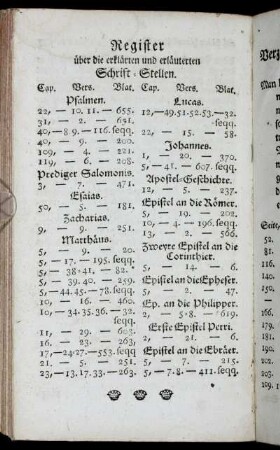 Register
über die erklärten und erläuterten
Schrift-Stellen.
Cap. Vers. Blat.
Psalmen.
22, — 10. 11. — 655.
31, — 2. — 631.
40, — 8 9. — 116. seqq.
40, — 9. — 200.
109, — 4. — 221.
119, — 6. — 208.
Prediger Salomonis.
3, — 7. — 471.
Esaias.
50, — 5. — 181.
Zacharias.
9, — 9. — 251.
Matthäus.
5, — 9. — 20.
5, — 17. — 195. seqq.
5, — 38. 41. — 82.
5, — 39. 40. — 259.
5, — 44. 45. — 78. seqq.
10, — 16. — 460.
10, — 34. 35. 36. — 32.
seqq.
11, — 29. — 603.
16. — 23. — 263.
17, — 24. 27. — 553. seqq
21. — 5. — 250.
23, — 13. 17. 33. — 263.
Cap. Vers. Blat.
Lucas.
12, — 49. 51. 52. 53. — 32.
seqq.
22, — 15. — 58.
Johannes.
1, — 20. — 370.
5, — 41. — 607. seqq.
Apostel-Geschichte.
12, — 5. — 237.
Epistel an die Römer.
5, — 19. — 202.
10, — 4. — 196. seqq.
13, — 2. — 566.
Zweyte Epistel an die
Corinthier.
5, — 14. — 6.
Epistel an die Epheser.
5, — 2. — 47.
Ep. an die Philipper.
2, — 5. 8. — 619.
Erste Epistel Petri.
2, — 21. — 6.
Epistel an die Ebräer.
5, — 7. — 215.
5, — 7. 8. — 411. seqq.
Seite,
52.
81.
116.
140.
166.
179.
181.
191.
202.
203.